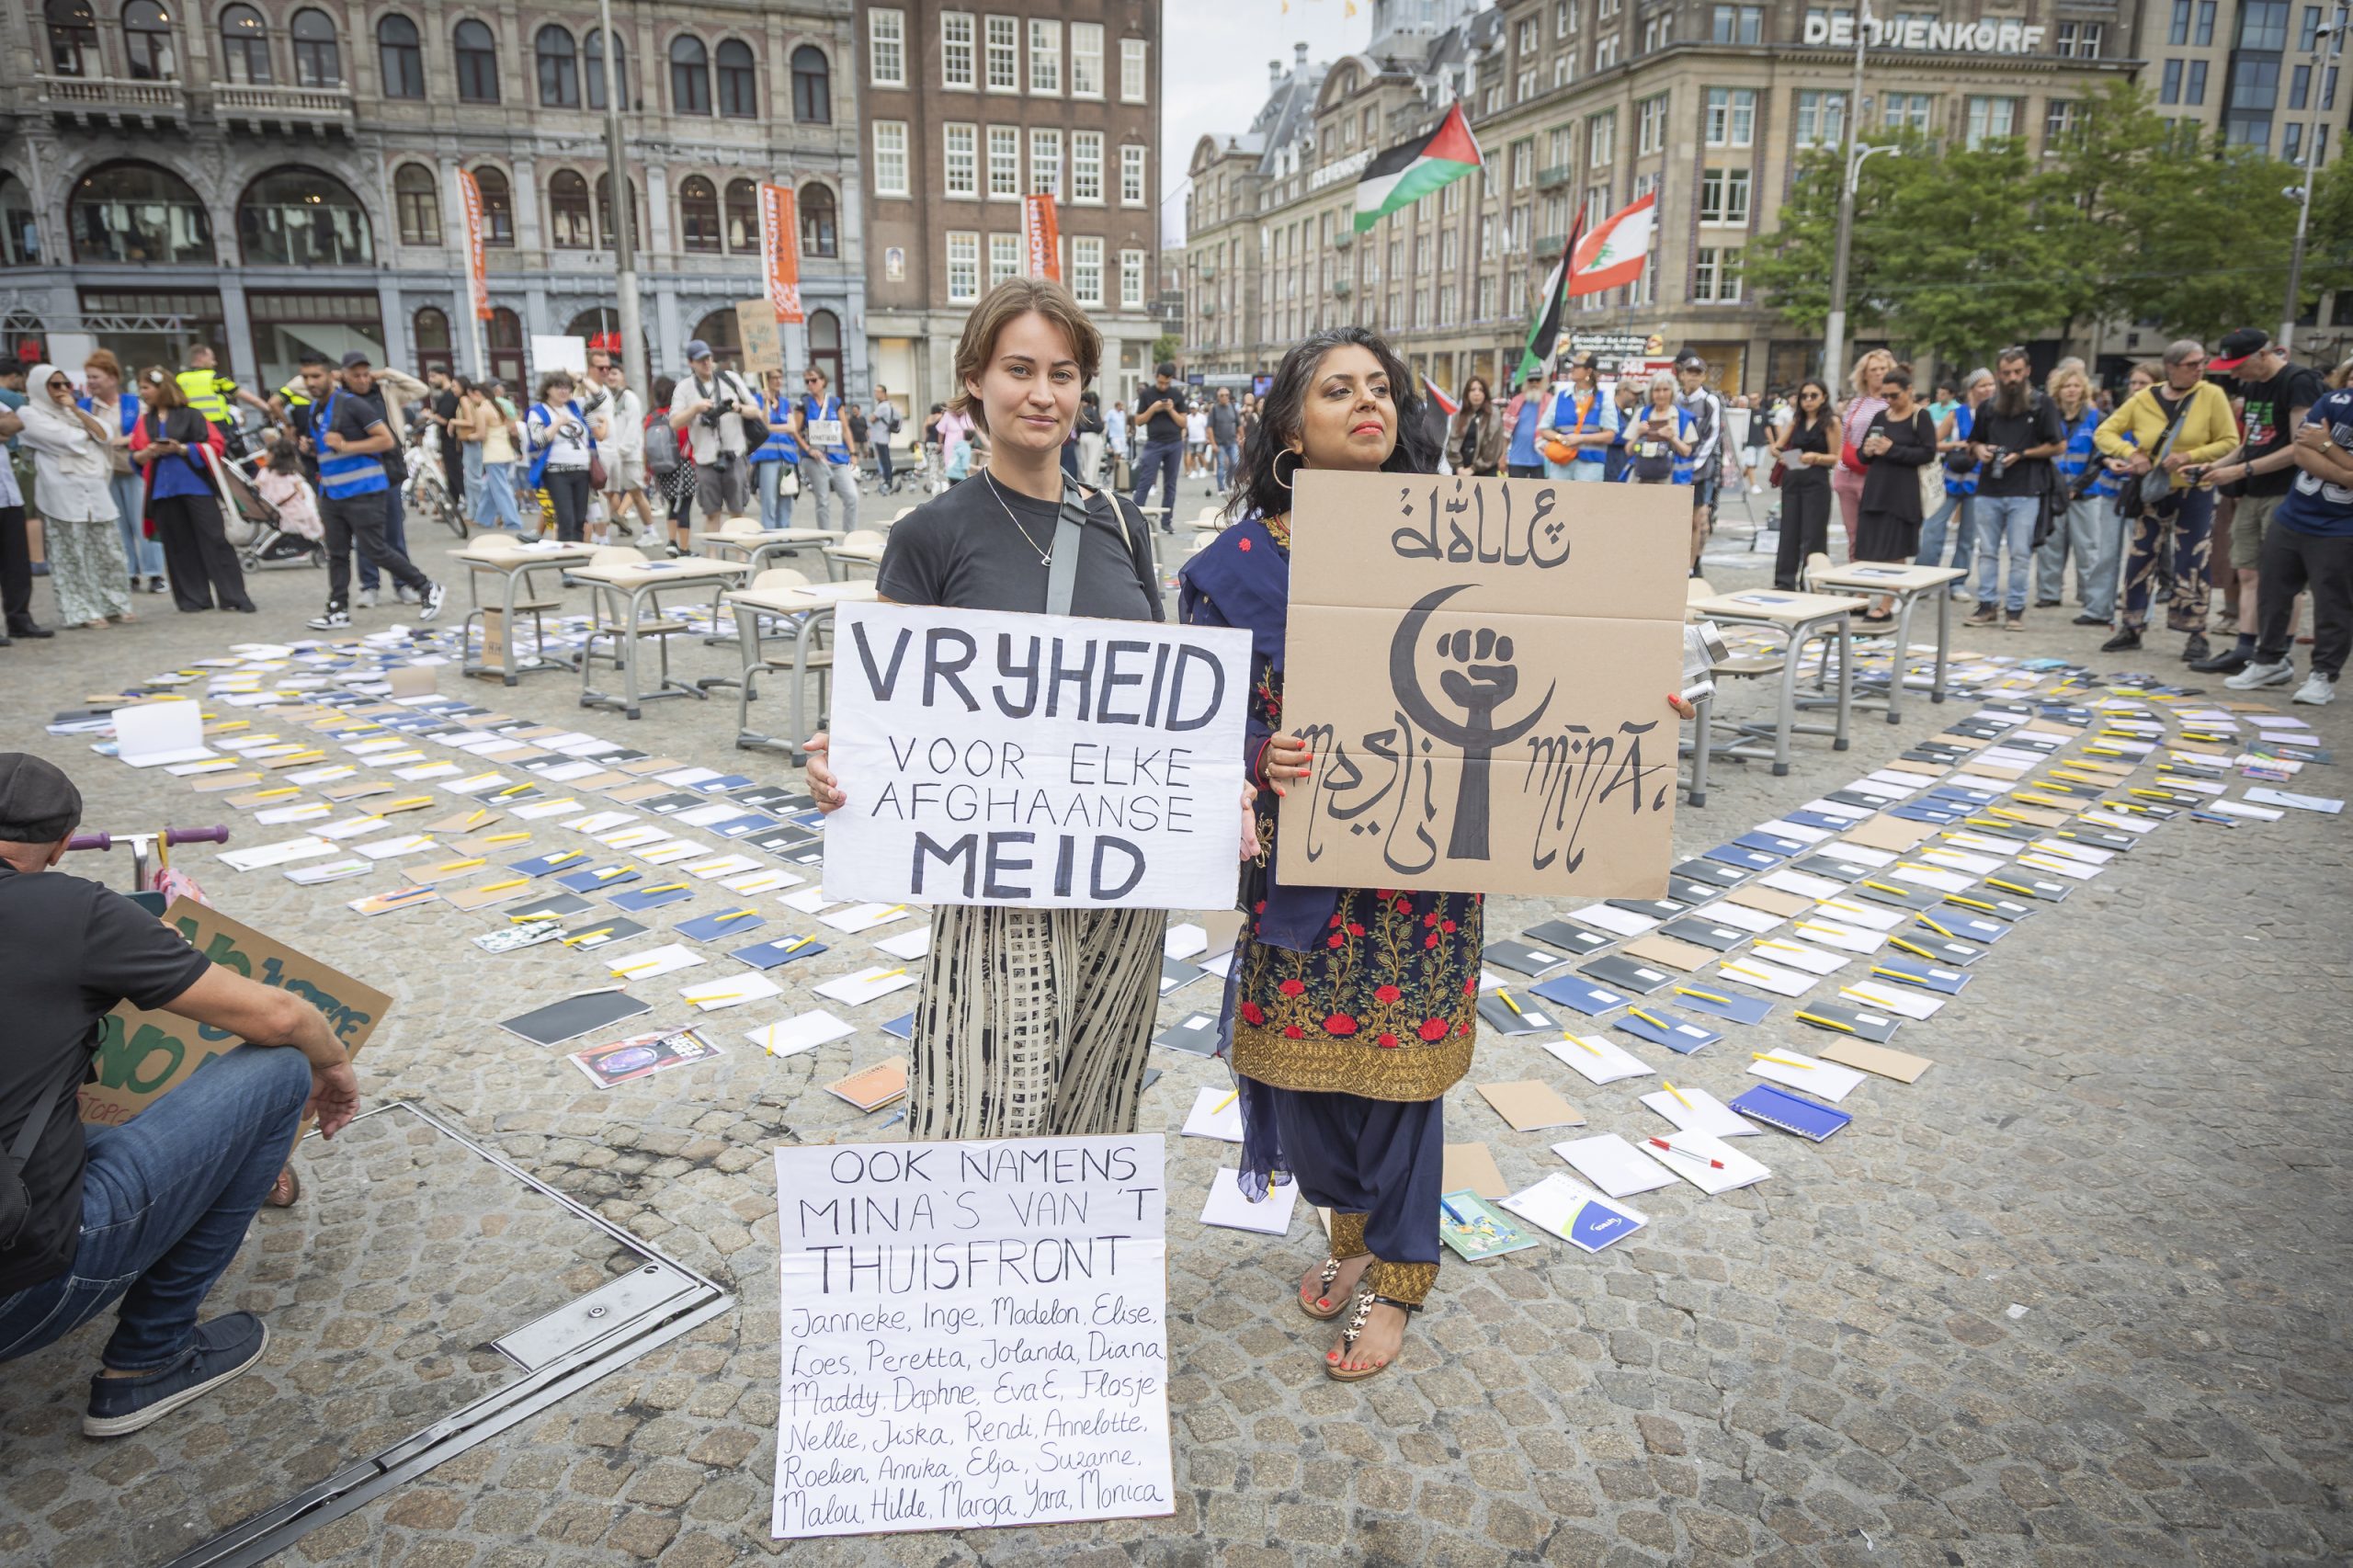 DE BIJENKORF
VRIJHEID
VOOR ELKE
AFGHAANSE
MEID
moslimminā.
OOK NAMENS
MINA'S VAN 'T
THUISFRONT
Janneke, Inge, Madelon, Elise,
Loes, Peretta, Jolanda, Diana,
Maddy, Daphne, Eva E, Flosje
Nellie, Jiska, Rendi, Annelotte,
Roelien, Annika, Elja, Suzanne,
Malou, Hilde, Marga, Yara, Monica
NO